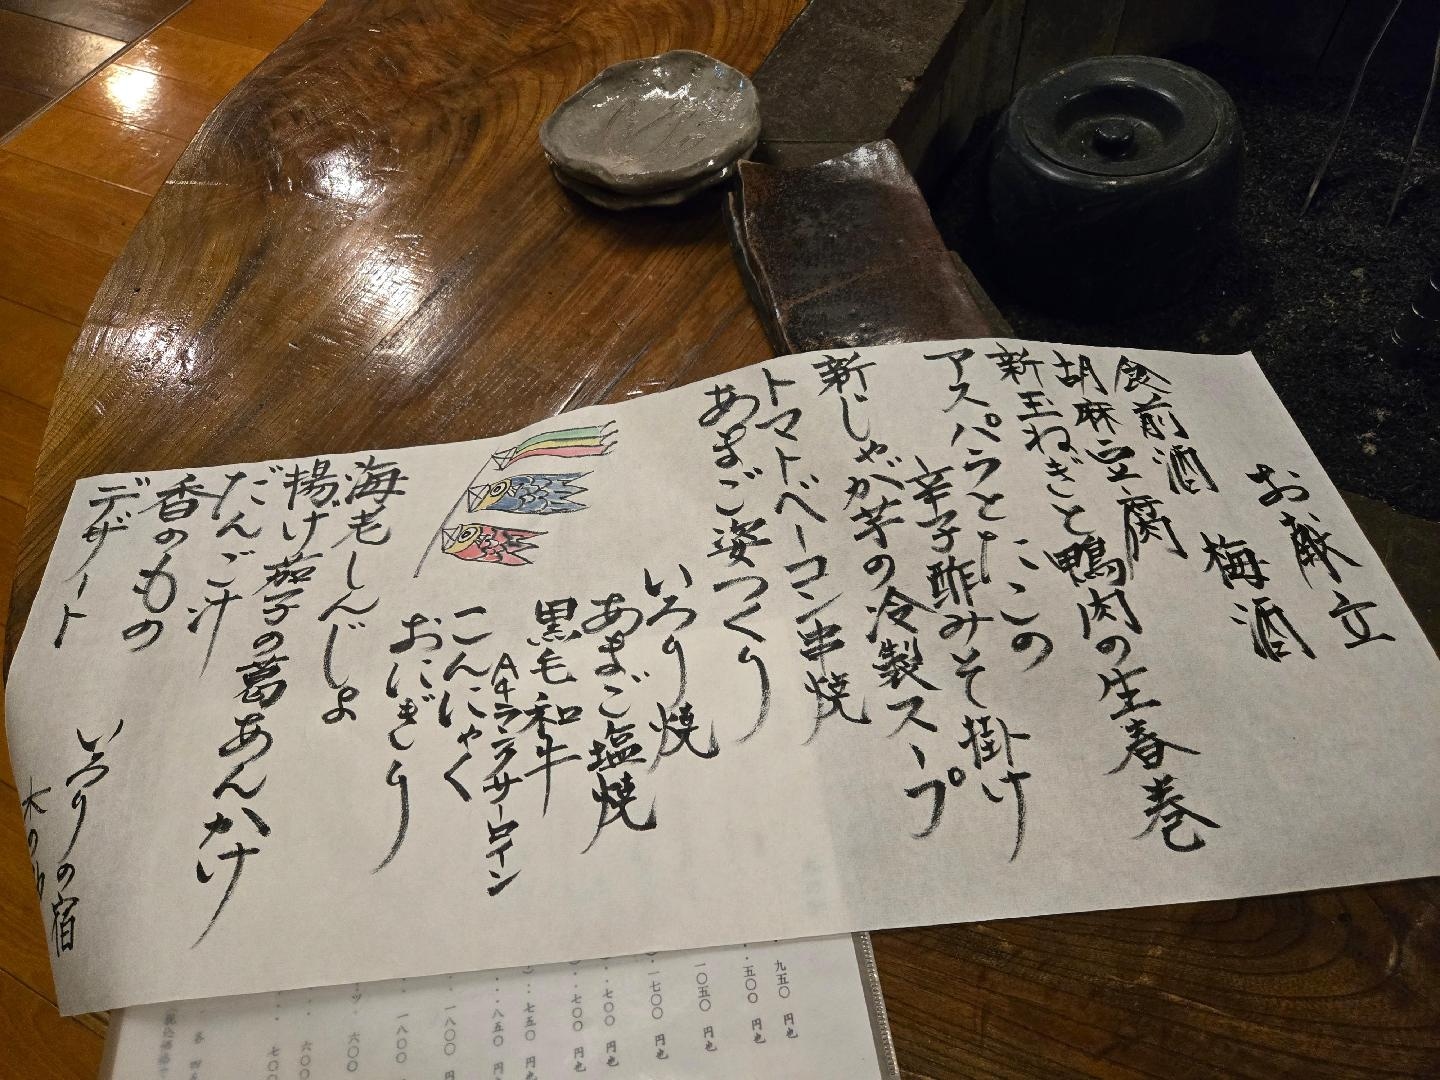 お献立
食前酒 梅酒
胡麻豆腐
新玉ねぎと鴨肉の生春巻
アスパラとたこの
辛子酢みそ掛け
新じゃが芋の冷製スープ
トマトベーコン串焼
あまご姿つくり
いろり焼
あまご塩焼
黒毛和牛
A4ランクサーロイン
こんにゃく
おにぎり
海老しんじょ
揚げ茄子の葛あんかけ
だんご汁
香のもの
デザート
いろりの宿
九五〇 円也
五〇〇 円也
一〇五〇 円也
一七〇〇 円也
七〇〇 円也
七〇〇 円也
七五〇 円也
八五〇 円也
一八〇〇 円
一八〇〇
六〇〇
六〇〇
七〇〇